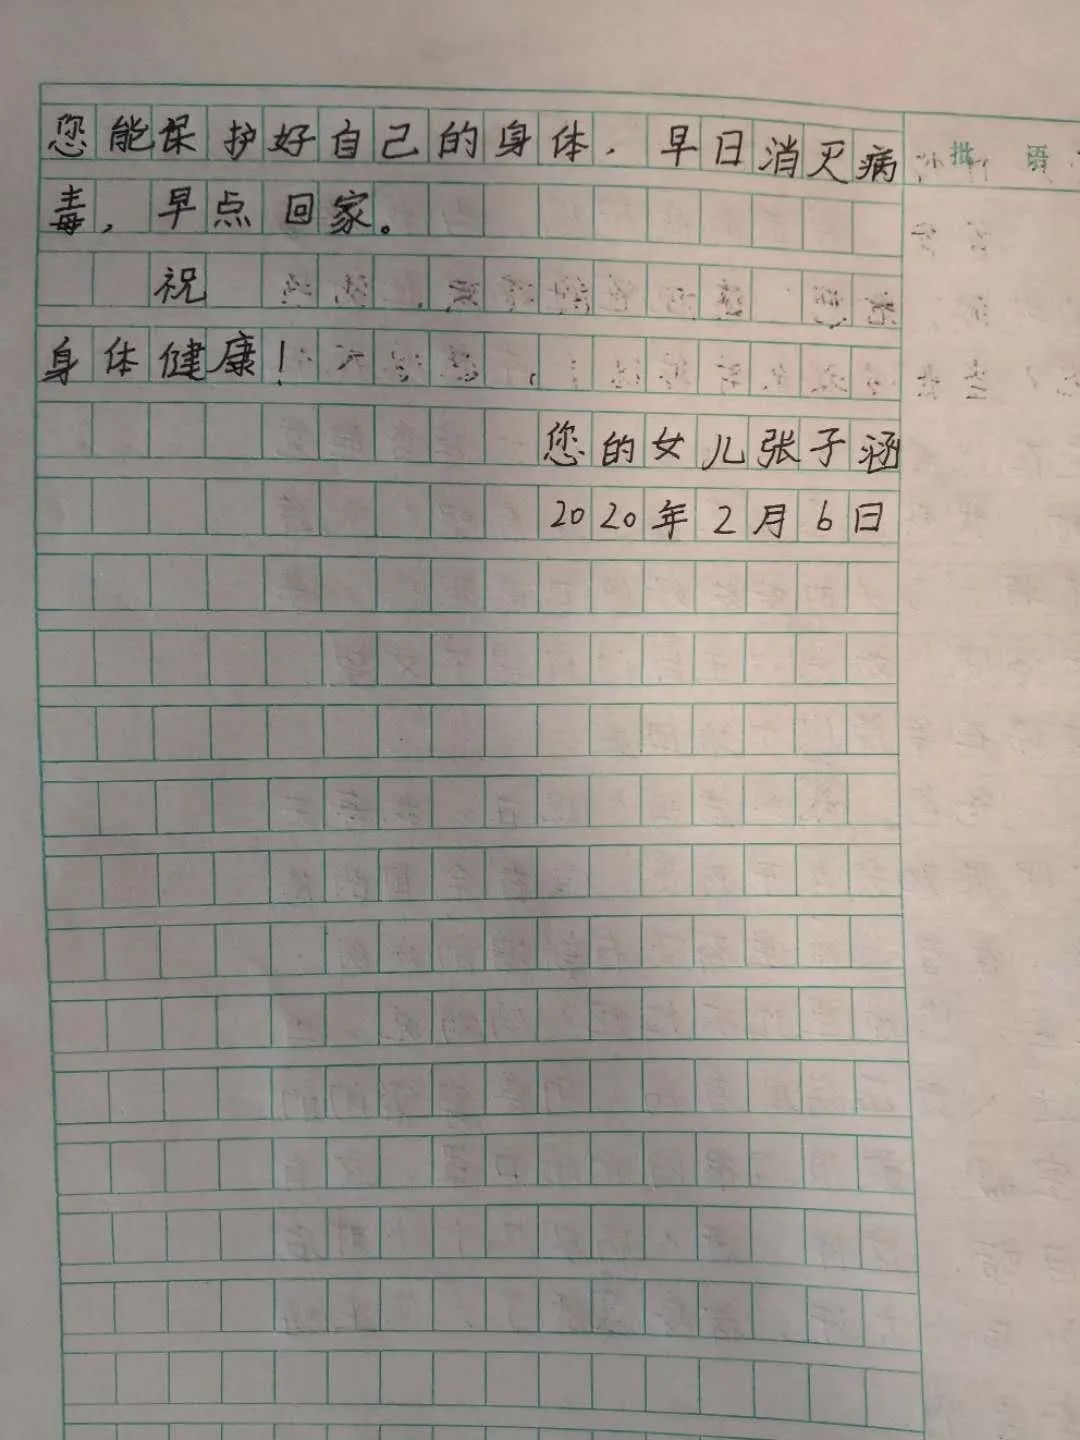 您能保护好自己的身体.早日消灭病
批语
毒,早点回家。
祝
身体健康!
您的女儿张子涵
2020年2月6日